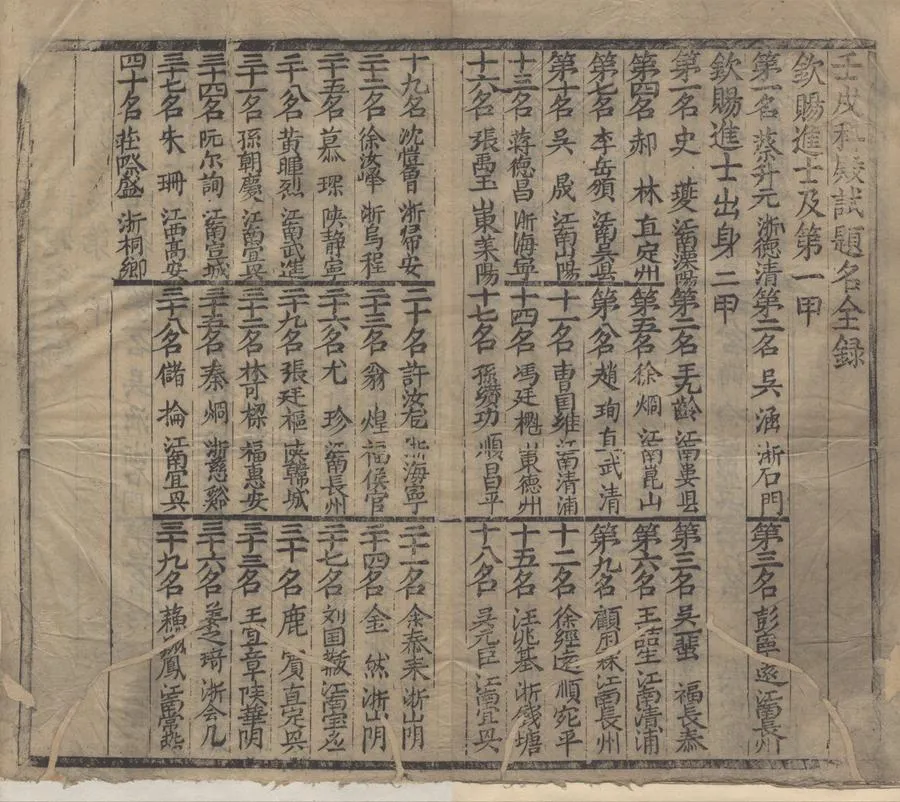 壬戌科殿試題名全録
欽賜進士及第一甲
第一名 蔡升元 浙德清 第二名 吳涵 浙石門 第三名 彭寧求 江南長州
欽賜進士出身 二甲
第一名 史夔 江南溧陽 第二名 王九齡 江南婁县 第三名 吴蜚 福長泰
第四名 郝林 直定州 第五名 徐烱 江南崑山 第六名 王喆生 江南清浦
第七名 李岳頒 江南吳县 第八名 趙珣 直武清 第九名 顧用霖 江南長州
第十名 吳晟 江南山陽 十一名 曹国維 江南清浦 十二名 徐經遠 順宛平
十三名 蒋德昌 浙海寧 十四名 馮廷櫆 山東德州 十五名 汪兆基 浙錢塘
十六名 張禹玉 山東莱陽 十七名 孫纘功 順昌平 十八名 吴元臣 江南宜兴
十九名 沈愷曾 浙帰安 二十名 許汝龙 浙海寧 二十一名 余泰来 浙山阴
二十二名 徐汝嶧 浙烏程 二十三名 翁煌 福侯官 二十四名 金然 浙山阴
二十五名 慕琛 陕静寧 二十六名 尤珍 江南長州 二十七名 刘国黻 江南宝应
二十八名 黄暉烈 江南武進 二十九名 張廷樞 陕韓城 三十名 鹿賓 直定兴
三十一名 孫朝慶 江南宜兴 三十二名 林可樑 福惠安 三十三名 王宜章 陕華阴
三十四名 阮尔詢 江南宣城 三十五名 秦烱 浙慈谿 三十六名 姜之琦 浙会几
三十七名 朱珊 江西高安 三十八名 儲掄 江南宜兴 三十九名 蘓翔鳳 江南常熟
四十名 莊際盛 浙桐鄉